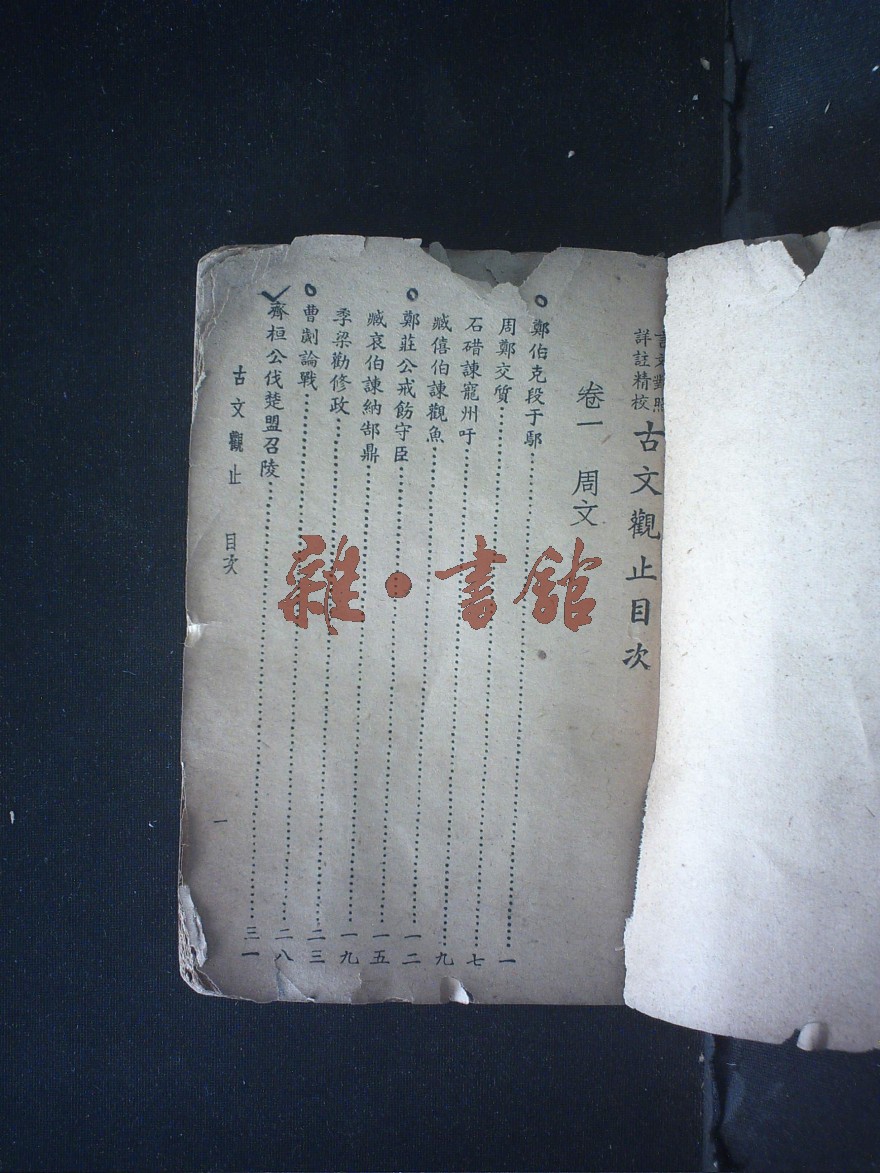 言文對照
詳註精校
古文觀止目次
卷一 周文
鄭伯克段于鄢………一
周鄭交質………七
石碏諫寵州吁………九
臧僖伯諫觀魚………一二
鄭莊公戒飭守臣………一五
臧哀伯諫納郜鼎………一九
季梁勸修政………二三
曹劌論戰………二八
齊桓公伐楚盟召陵………三一
古文觀止 目次 一
雜·書館